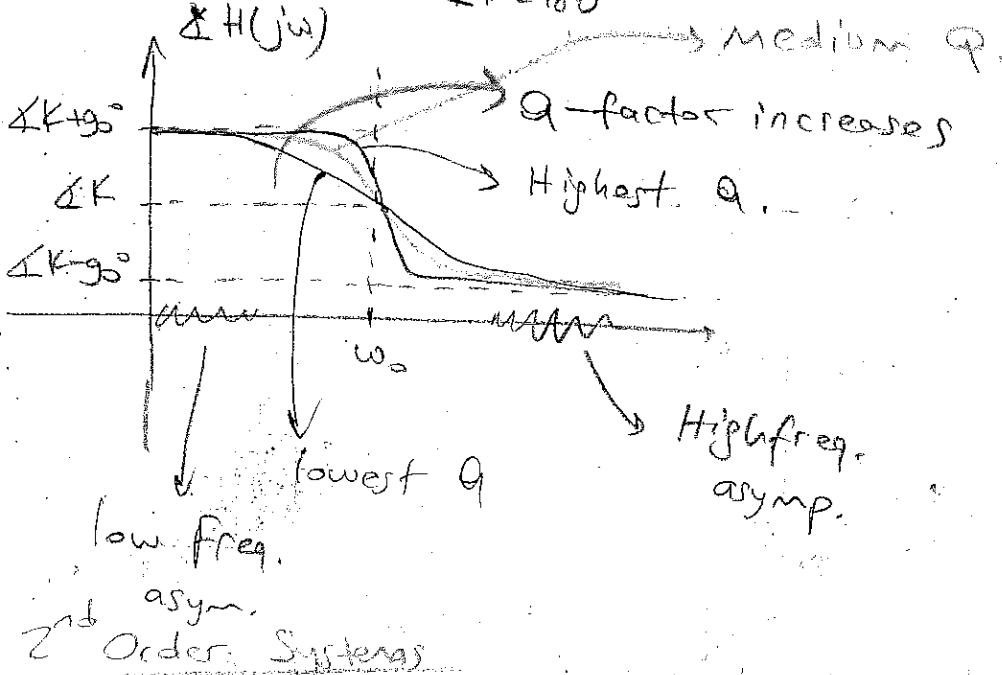 ∡H(jω)
Medium Q.
∡K+90°
Q-factor increases
∡K
Highest Q.
∡K-90°
ω₀
lowest Q
High freq.
asymp.
low freq.
asym.
2nd Order Systems